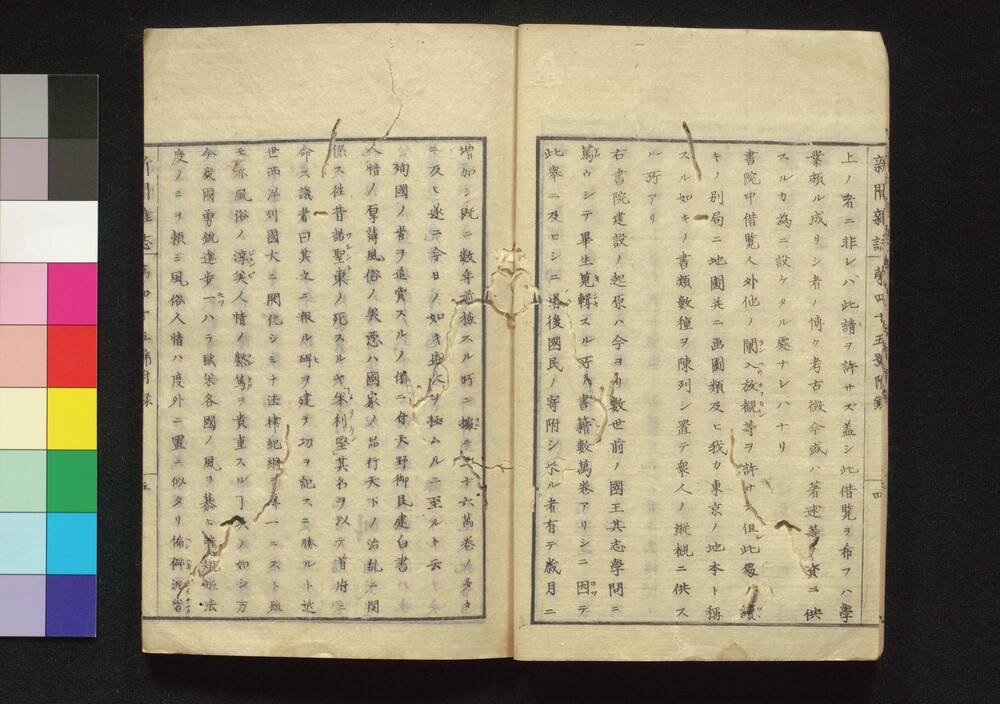 新聞雑誌 第四十五號附録
四
上ノ者ニ非レバ此請ヲ許サズ盖シ此借覧ヲ布フハ學
業頗ル成リシ者ノ博ク考古徴今或ハ著述等ノ資ニ供
スルカ為ニ設ケタル處ナレハナリ
書院中借覧人外他ノ闌入放観等ヲ許サス但此處ハ讀
キノ別局ニ地圖并ニ画圖類及ヒ我カ東京ノ地本ト稱
スル如キノ書類數種ヲ陳列シ置テ衆人ノ縦観ニ供ス
ル所アリ
右書院建設ノ起原ハ今ヨリ數世前ノ國王其志學問ニ
篤ウシテ畢生蒐輯スル所ノ書籍數萬巻アリシニ因テ
此擧ニ及ヒシニ 後國民ノ寄附シ來ル者有テ歳月ニ
増加シ既ニ數年前 スル所ニ據ニ 十六萬巻ノ多キ
ニ及ヒ遂ニ今日ノ如キ盛大ヲ極ムルニ至ルト云
殉國ノ者ヲ追賞スルノ儀ニ付天野御民建白書
人情ノ厚薄風俗ノ美悪ハ國家ノ品行天下ノ治乱ニ関
係ス往昔諾聖東ノ死スルヤ米利堅其名ヲ以テ首府ニ
命ス議者曰其文ニ報ル碑ヲ建テ功ヲ記スニ勝ルト近
世西洋列國大ニ開化シミナ法律紀綱 一ニスト雖
モ亦風俗ノ淳美人情ノ懿篤ヲ貴重スル丁 ノ如シ方
今我國勇鋭進歩一ハラ歐米各國ノ風ヲ慕ヒ 規矩法
度ノミヲ頼ミ風俗人情ハ度外ニ置ニ似タリ偏僻
新聞雑誌 第四十五號附録
五